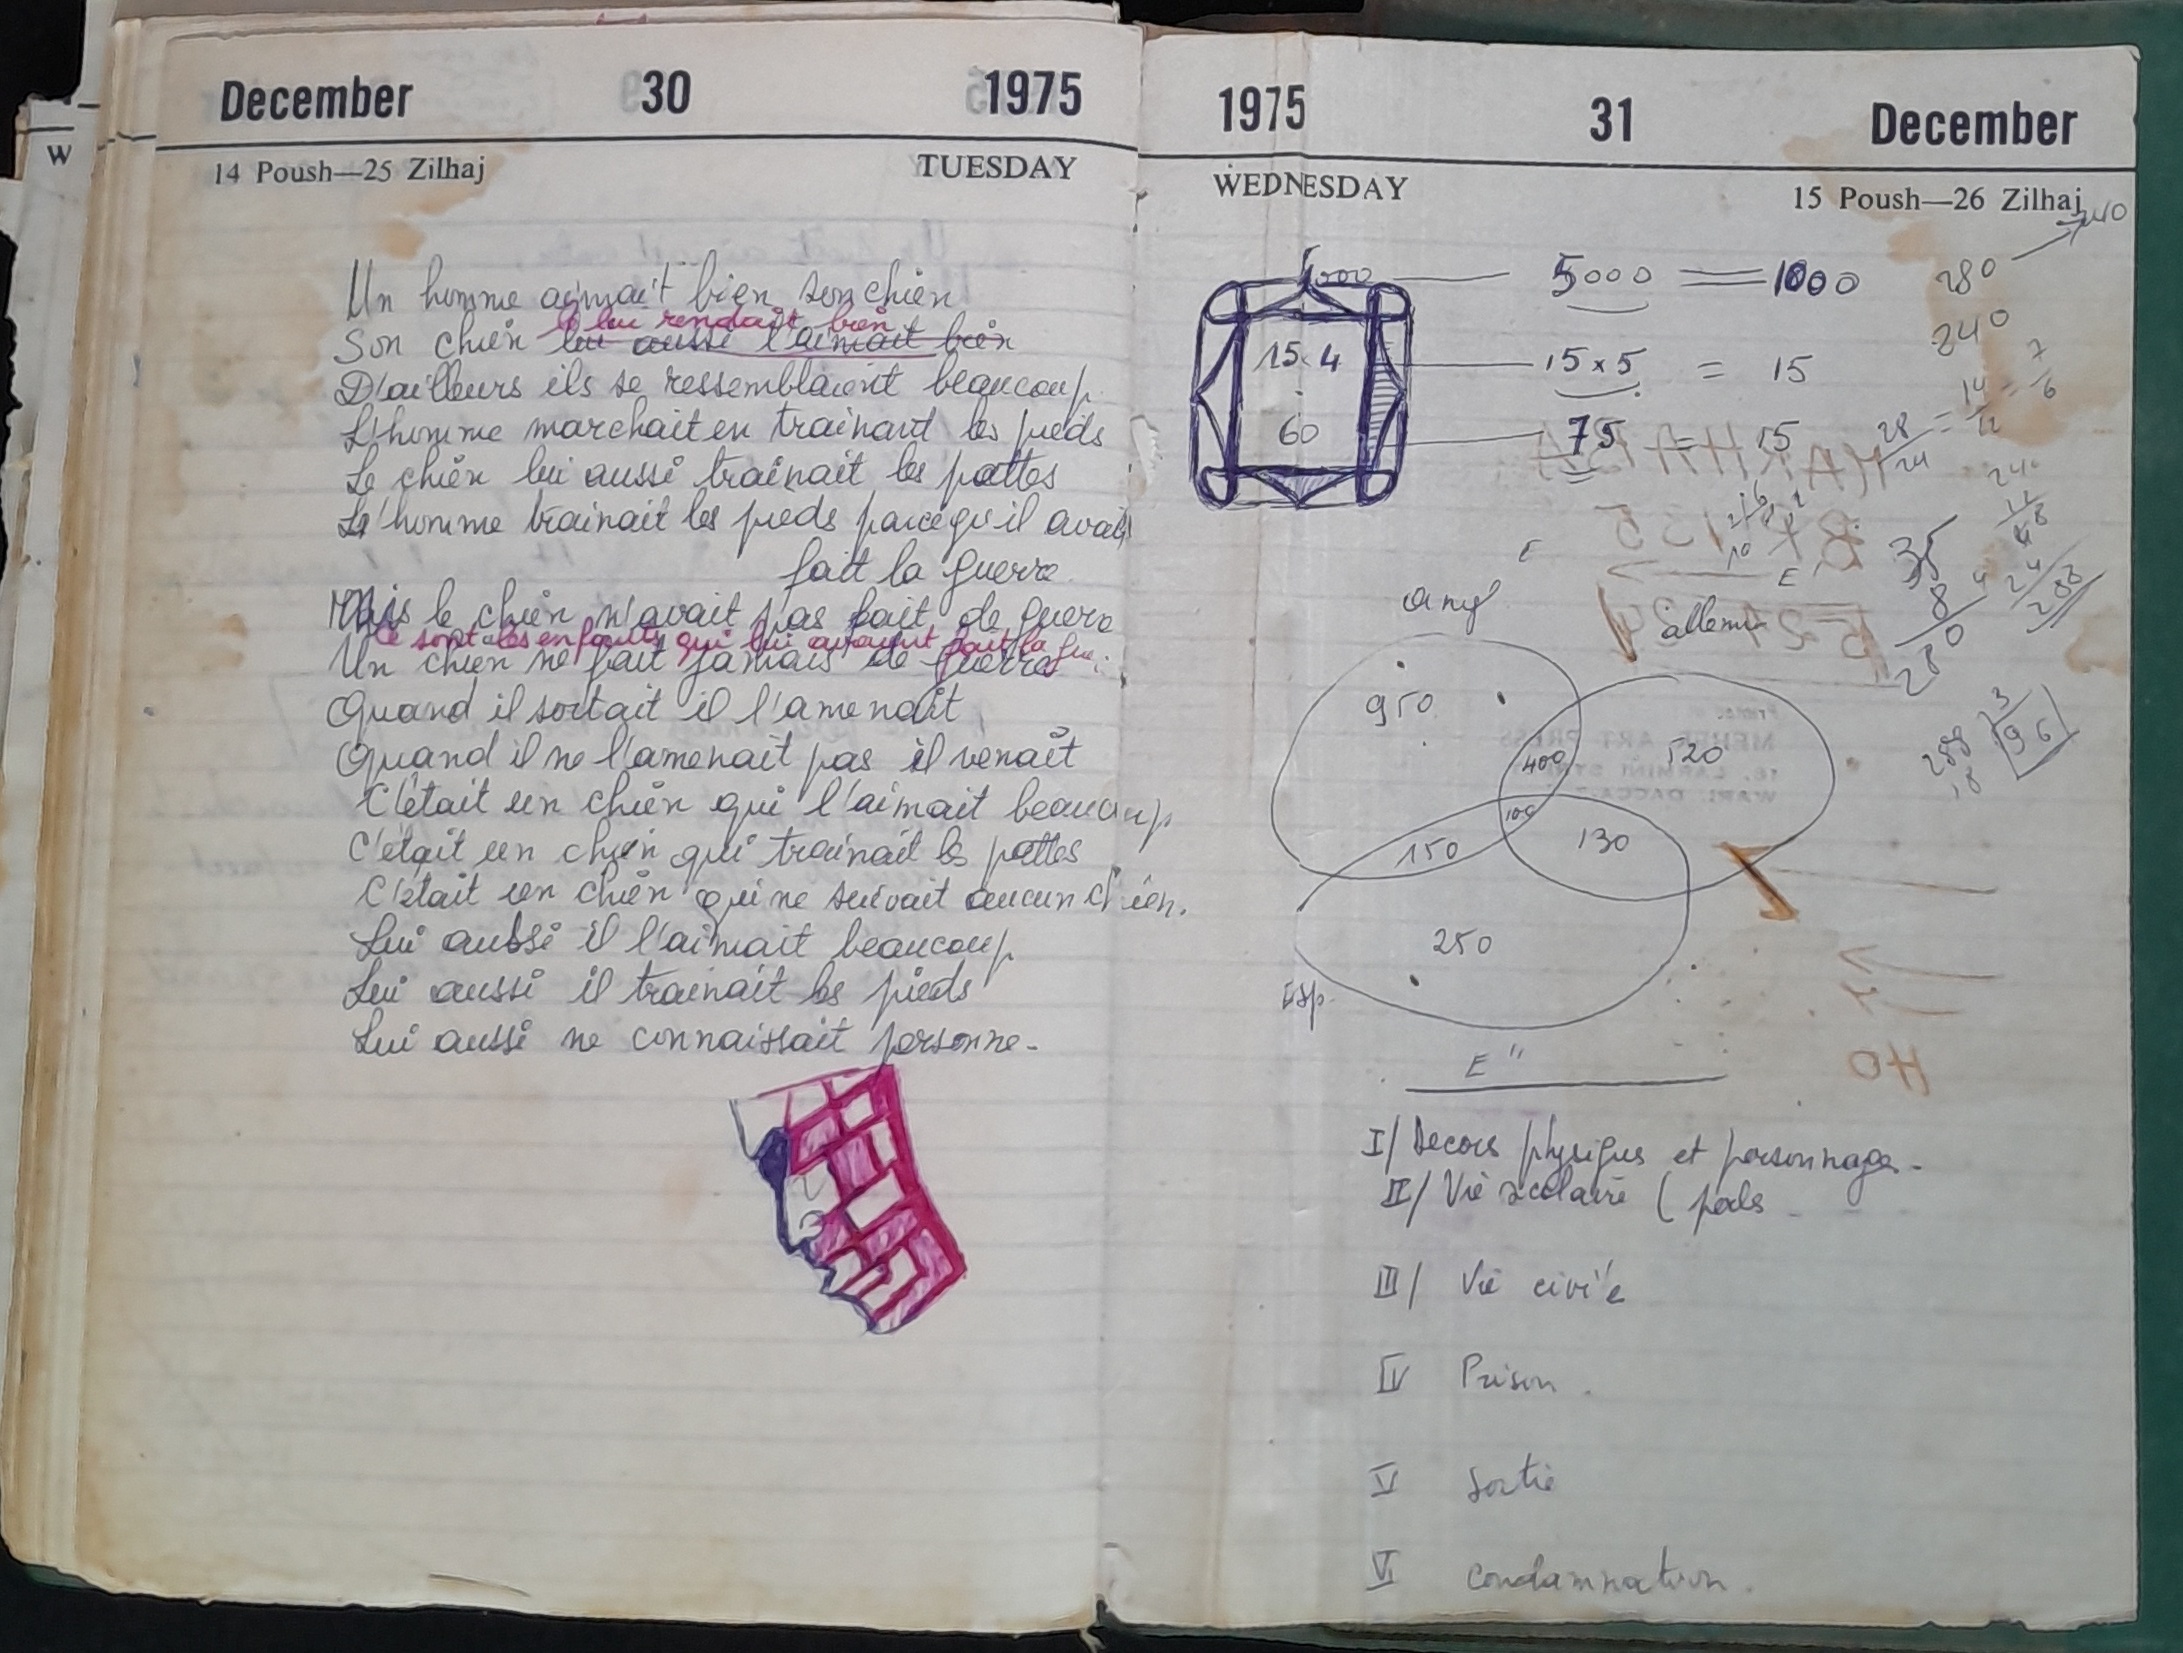 December 30 1975
14 Poush—25 Zilhaj TUESDAY
Un homme aimait bien son chien
le lui rendait bien
Son chien lui aussi l'aimait bien
D'ailleurs ils se ressemblaient beaucoup
L'homme marchait en trainant les pieds
Le chien lui aussi trainait les pattes
L'homme trainait les pieds parcequ'il avait
fait la guerre
Mais le chien n'avait pas fait de guerre
ce sont les enfants qui lui avaient fait la
Un chien ne fait jamais de guerre
Quand il sortait il l'amenait
Quand il ne l'amenait pas il venait
C'était un chien qui l'aimait beaucoup
C'était un chien qui trainait les pattes
C'était un chien qui ne suivait aucun chien.
Lui aussi il l'aimait beaucoup
Lui aussi il trainait les pieds
Lui aussi ne connaissait personne-
1975 31 December
WEDNESDAY 15 Poush—26 Zilhaj
5000 = 1000
280
240
15.4 15x5 = 15
60 75 = 15
28/24 = 14/12 = 7/6
35
8
280
24
12
48
24
288
288 3
18 96
ang allem
950
400 520
100
150 130
250
Esp.
E"
I/ Decors physiques et personnages-
II/ Vie scolaire (
III/ Vie civile
IV Prison.
V Sortie
VI Condamnation.
W